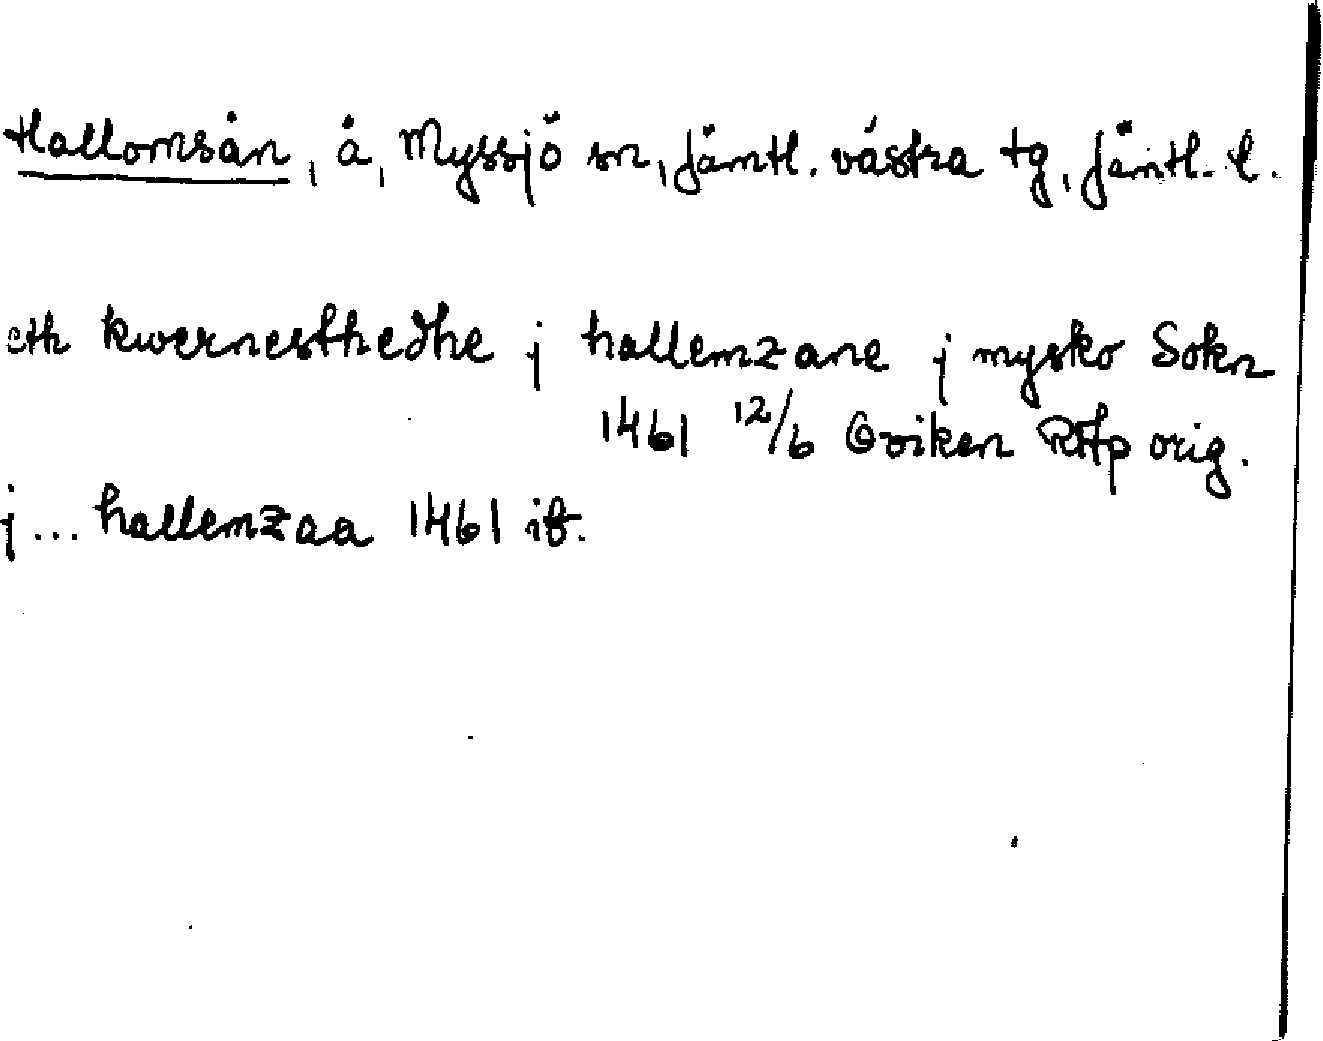 Hallomsån, å, Myssjö sn, Jämtl. västra tg, Jämtl. l.
eth kwernesthedhe j hallemzane j mysko Sokn
1461 12/6 Oviken RAp orig.
j ... hallemzaa 1461 ib.